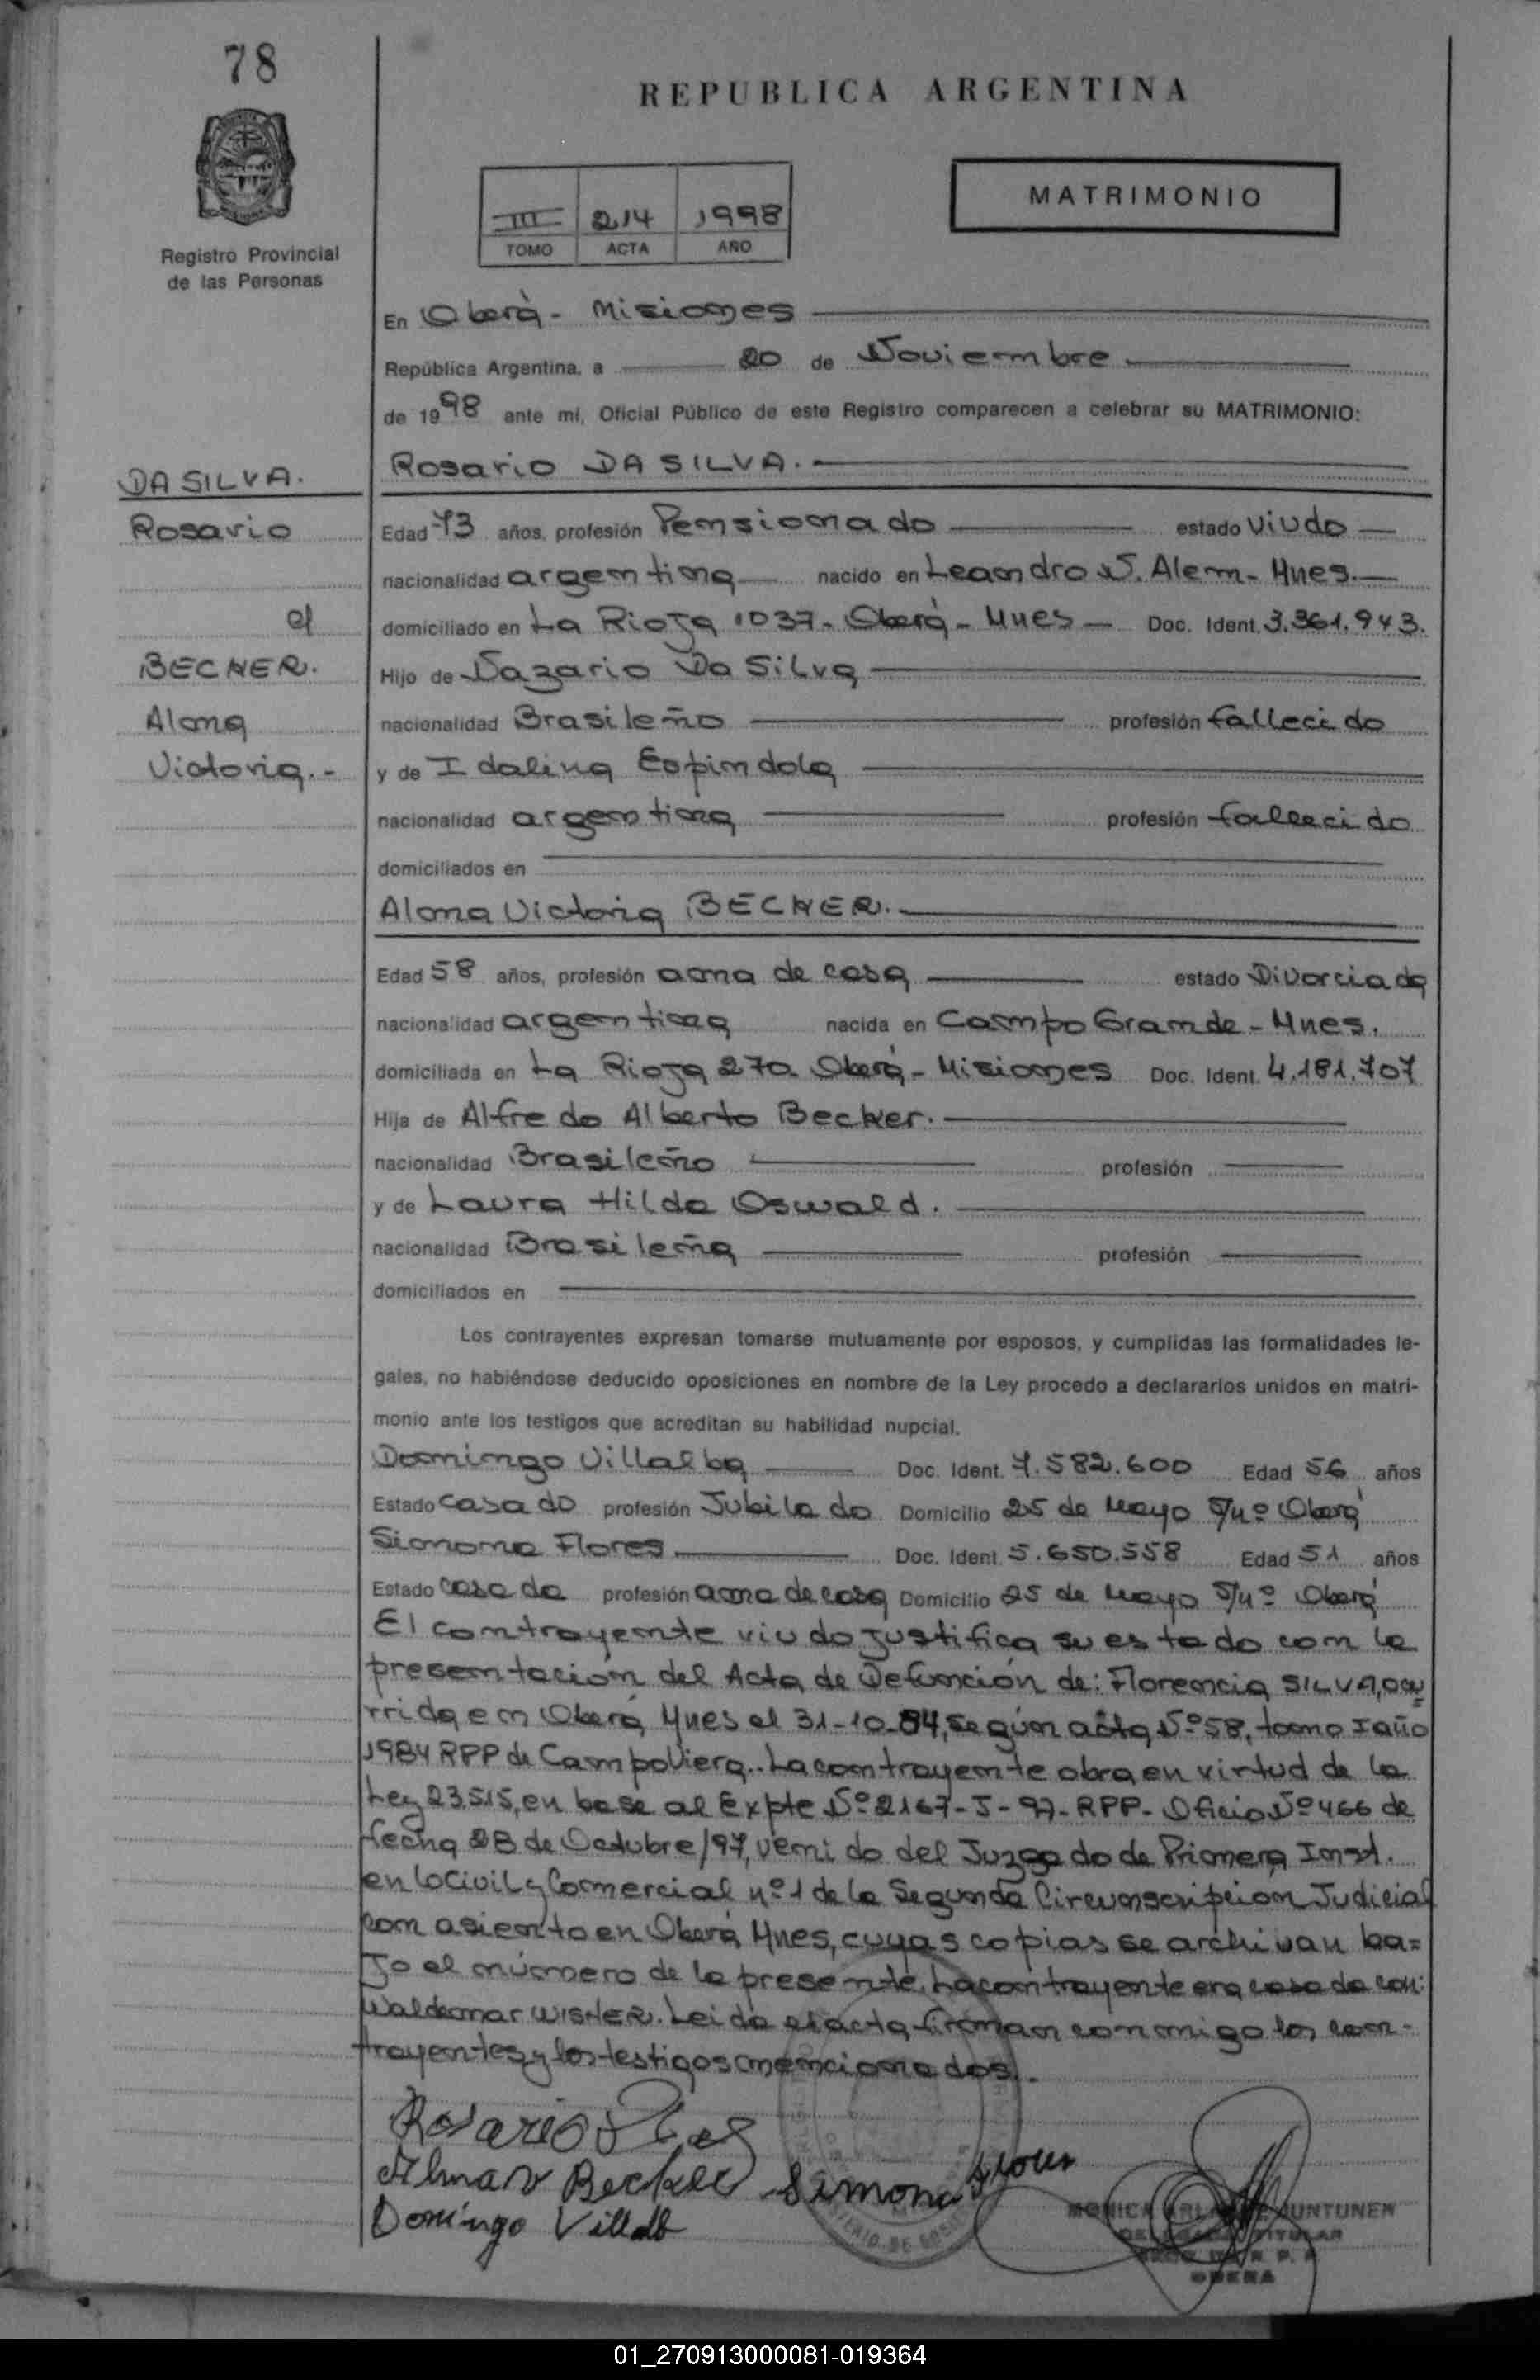 78
REPUBLICA ARGENTINA
MATRIMONIO
III 214 1998
TOMO ACTA AÑO
Registro Provincial
de las Personas
En Oberá - Misiones
República Argentina, a 20 de Noviembre
de 1998 ante mí, Oficial Público de este Registro comparecen a celebrar su MATRIMONIO:
DA SILVA.
Rosario
c/
BECKER.
Alma
Victoria.-
Rosario DA SILVA.
Edad 73 años, profesión Pensionado estado Viudo
nacionalidad argentina nacido en Leandro N. Alem - Mnes.
domiciliado en La Rioja 1037 - Oberá - Mnes Doc. Ident. 3.361.943.
Hijo de Nazario Da Silva
nacionalidad Brasileño profesión fallecido
y de Idalina Espindola
nacionalidad argentina profesión fallecido
domiciliados en
Alma Victoria BECKER.
Edad 58 años, profesión ama de casa estado Divorciada
nacionalidad argentina nacida en Campo Grande - Mnes.
domiciliada en La Rioja 270. Oberá - Misiones Doc. Ident. 4.181.707
Hija de Alfredo Alberto Becker.
nacionalidad Brasileño profesión
y de Laura Hilda Oswald.
nacionalidad Brasileña profesión
domiciliados en
Los contrayentes expresan tomarse mutuamente por esposos, y cumplidas las formalidades le-
gales, no habiéndose deducido oposiciones en nombre de la Ley procedo a declararlos unidos en matri-
monio ante los testigos que acreditan su habilidad nupcial.
Domingo Villalba Doc. Ident. 7.582.600 Edad 56 años
Estado Casado profesión Jubilado Domicilio 25 de Mayo S/nº Oberá
Simona Flores Doc. Ident. 5.650.558 Edad 51 años
Estado casada profesión ama de casa Domicilio 25 de Mayo S/nº Oberá
El contrayente viudo justifica su estado con la
presentación del Acta de Defunción de: Florencia SILVA, ocu=
rrida en Oberá, Mnes el 31-10-84, según acta Nº 58, tomo I año
1984 RPP de Campo Viera.. La contrayente obra en virtud de la
Ley 23.515, en base al Expte Nº 2167-J-97-RPP- Oficio Nº 466 de
fecha 28 de Octubre/97, venido del Juzgado de Primera Inst.
en lo Civil y Comercial nº 1 de la Segunda Circunscripción Judicial
con asiento en Oberá, Mnes, cuyas copias se archivan ba=
jo el número de la presente. La contrayente era casada con:
Waldemar WISHER. Leída el acta firman conmigo los con-
trayentes y los testigos mencionados.
Rosario
Alma V Becker Simona Flores
Domingo Villalb
MONICA JUNTUNEN
TITULAR
OBERA
01_270913000081-019364